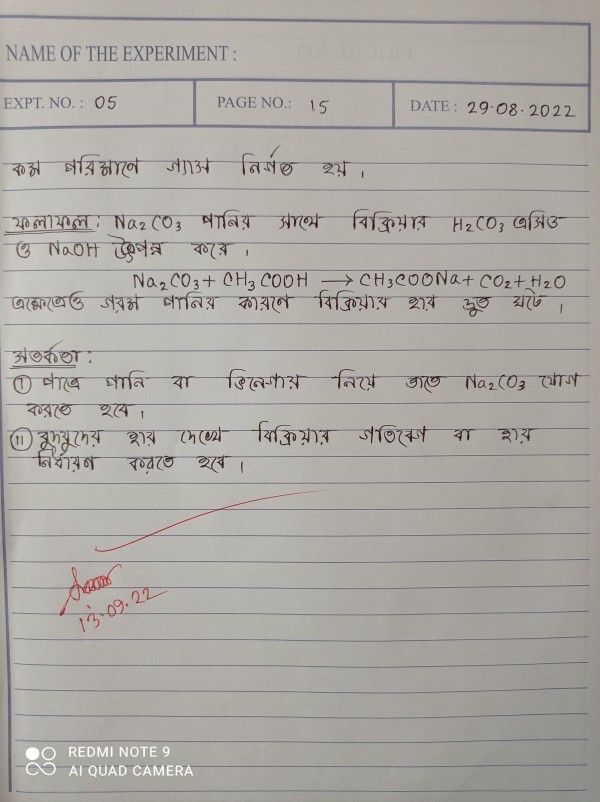 NAME OF THE EXPERIMENT :
EXPT. NO. : 05 PAGE NO.: 15 DATE : 29.08.2022
কম পরিমাণে গ্যাস নির্গত হয়।
ফলাফল: Na2CO3 পানির সাথে বিক্রিয়ায় H2CO3 এসিড
ও NaOH উৎপন্ন করে।
Na2CO3 + CH3COOH → CH3COONa + CO2 + H2O
এক্ষেত্রেও গরম পানির কারণে বিক্রিয়ার হার দ্রুত ঘটে।
সতর্কতা:
(I) পাত্রে পানি বা ভিনেগার নিয়ে তাতে Na2CO3 যোগ
করতে হবে।
(II) বুদবুদের হার দেখে বিক্রিয়ার গতিবেগ বা হার
নির্ধারণ করতে হবে।
13.09.22
REDMI NOTE 9
AI QUAD CAMERA